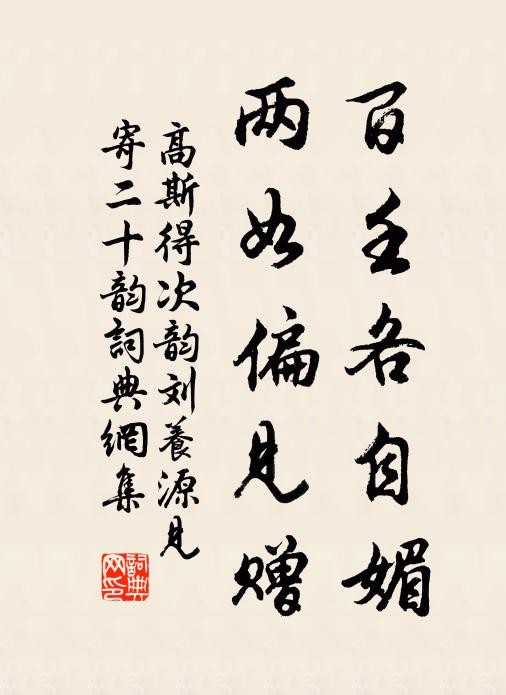 百壬各自媚
两如偏見赠
高斯得次韵刘養源見
寄二十韵詞典網集
詞典网印